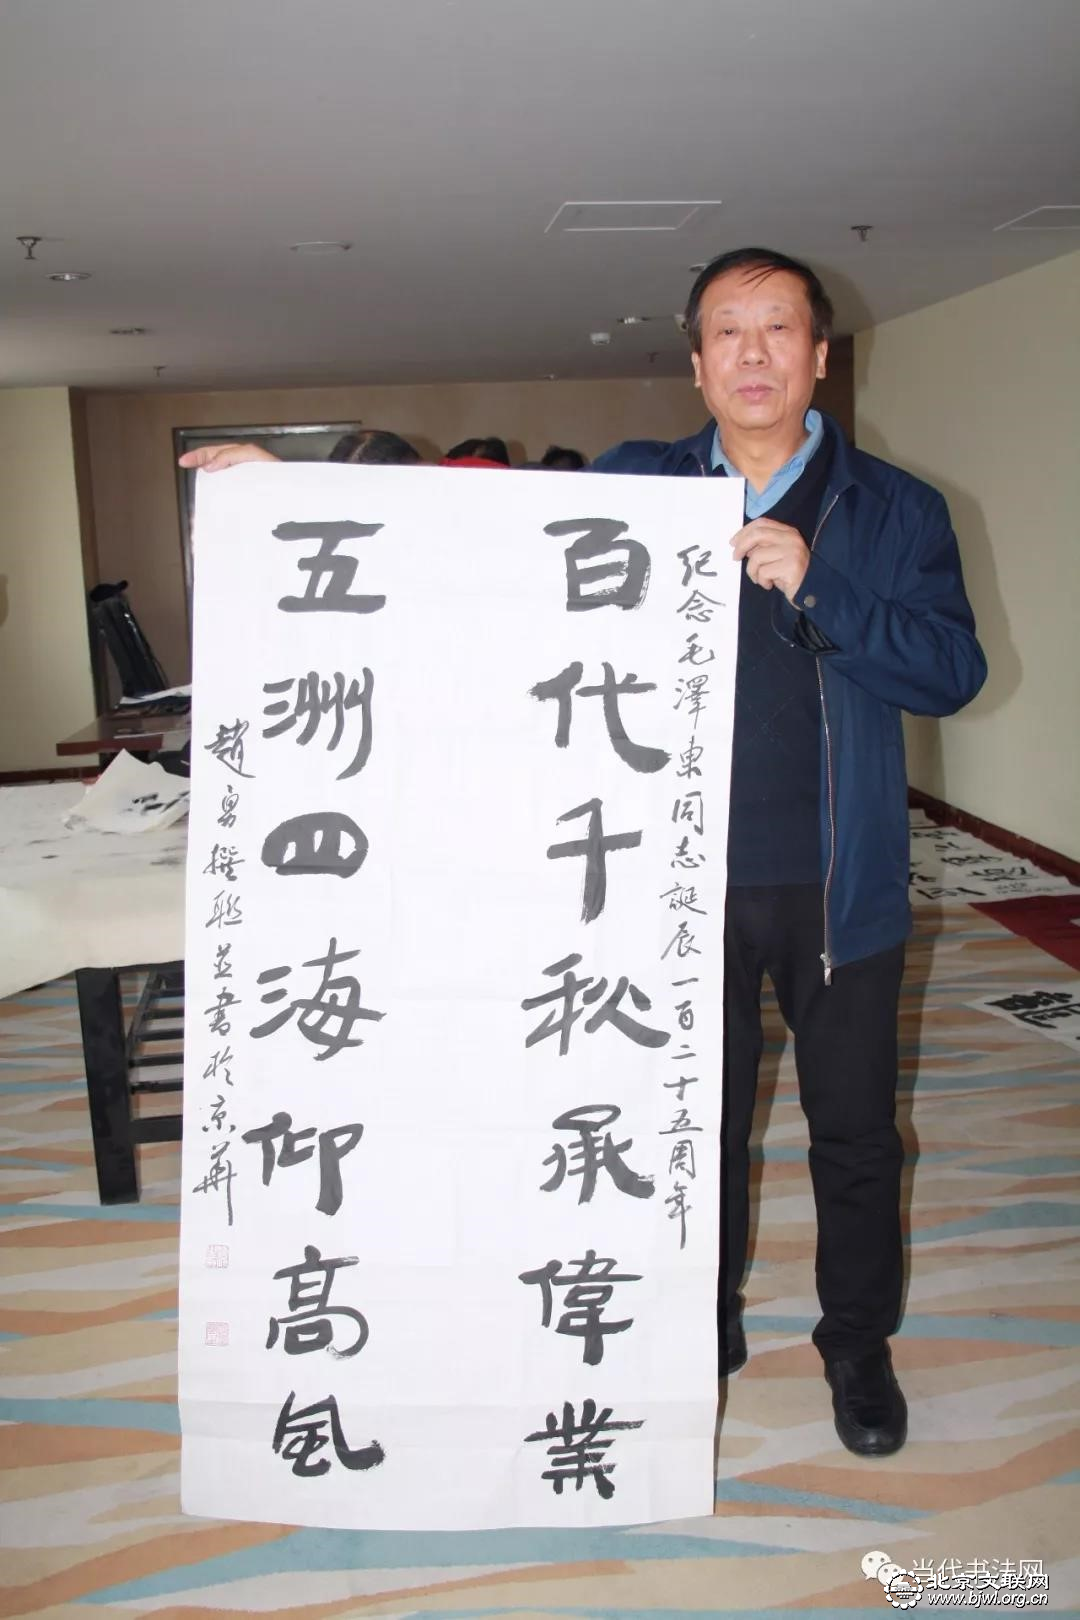 紀念毛澤東同志誕辰一百二十五周年
百代千秋承偉業
五洲四海仰高風
趙勇撰聯並書於京華
当代书法网
北京文联网
www.bjwl.org.cn